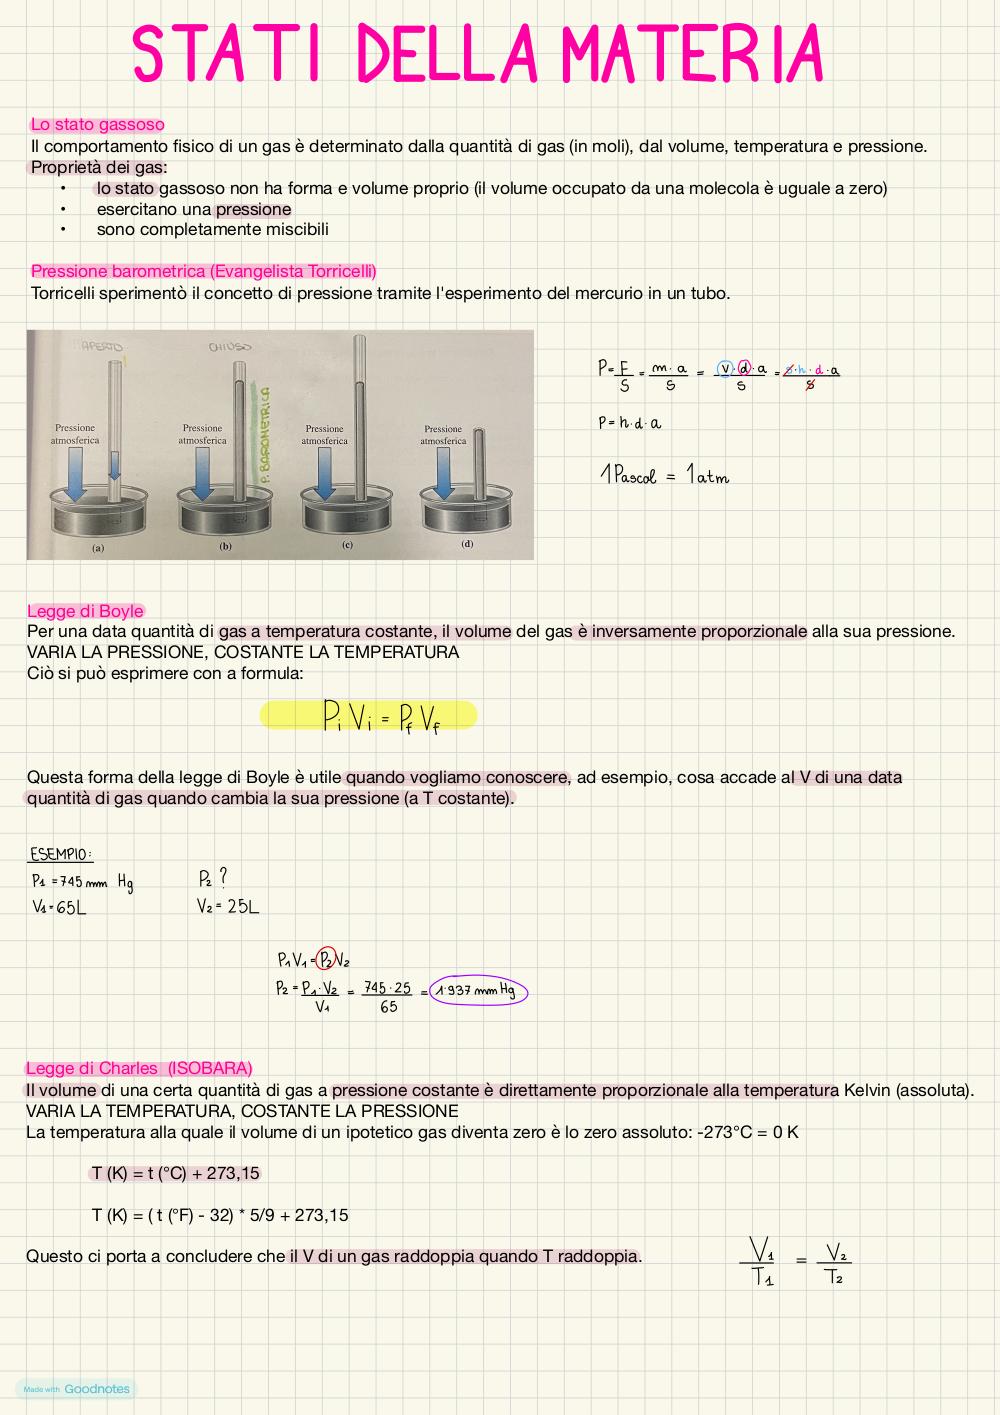 STATI DELLA MATERIA
Lo stato gassoso
Il comportamento fisico di un gas è determinato dalla quantità di gas (in moli), dal volume, temperatura e pressione.
Proprietà dei gas:
• lo stato gassoso non ha forma e volume proprio (il volume occupato da una molecola è uguale a zero)
• esercitano una pressione
• sono completamente miscibili
Pressione barometrica (Evangelista Torricelli)
Torricelli sperimentò il concetto di pressione tramite l'esperimento del mercurio in un tubo.
APERTO
CHIUSO
P. BAROMETRICA
Pressione atmosferica
Pressione atmosferica
Pressione atmosferica
Pressione atmosferica
(a)
(b)
(c)
(d)
P = F/S = m · a/S = v · d · a/S = s · h · d · a/S
P = h · d · a
1 Pascal = 1 atm
Legge di Boyle
Per una data quantità di gas a temperatura costante, il volume del gas è inversamente proporzionale alla sua pressione.
VARIA LA PRESSIONE, COSTANTE LA TEMPERATURA
Ciò si può esprimere con a formula:
Pi Vi = Pf Vf
Questa forma della legge di Boyle è utile quando vogliamo conoscere, ad esempio, cosa accade al V di una data
quantità di gas quando cambia la sua pressione (a T costante).
ESEMPIO:
P1 = 745 mm Hg P2 ?
V1 = 65L V2 = 25L
P1 V1 = P2 V2
P2 = P1 · V2/V1 = 745 · 25/65 = 1·937 mm Hg
Legge di Charles (ISOBARA)
Il volume di una certa quantità di gas a pressione costante è direttamente proporzionale alla temperatura Kelvin (assoluta).
VARIA LA TEMPERATURA, COSTANTE LA PRESSIONE
La temperatura alla quale il volume di un ipotetico gas diventa zero è lo zero assoluto: -273°C = 0 K
T (K) = t (°C) + 273,15
T (K) = ( t (°F) - 32) * 5/9 + 273,15
Questo ci porta a concludere che il V di un gas raddoppia quando T raddoppia.
V1/T1 = V2/T2
Made with Goodnotes